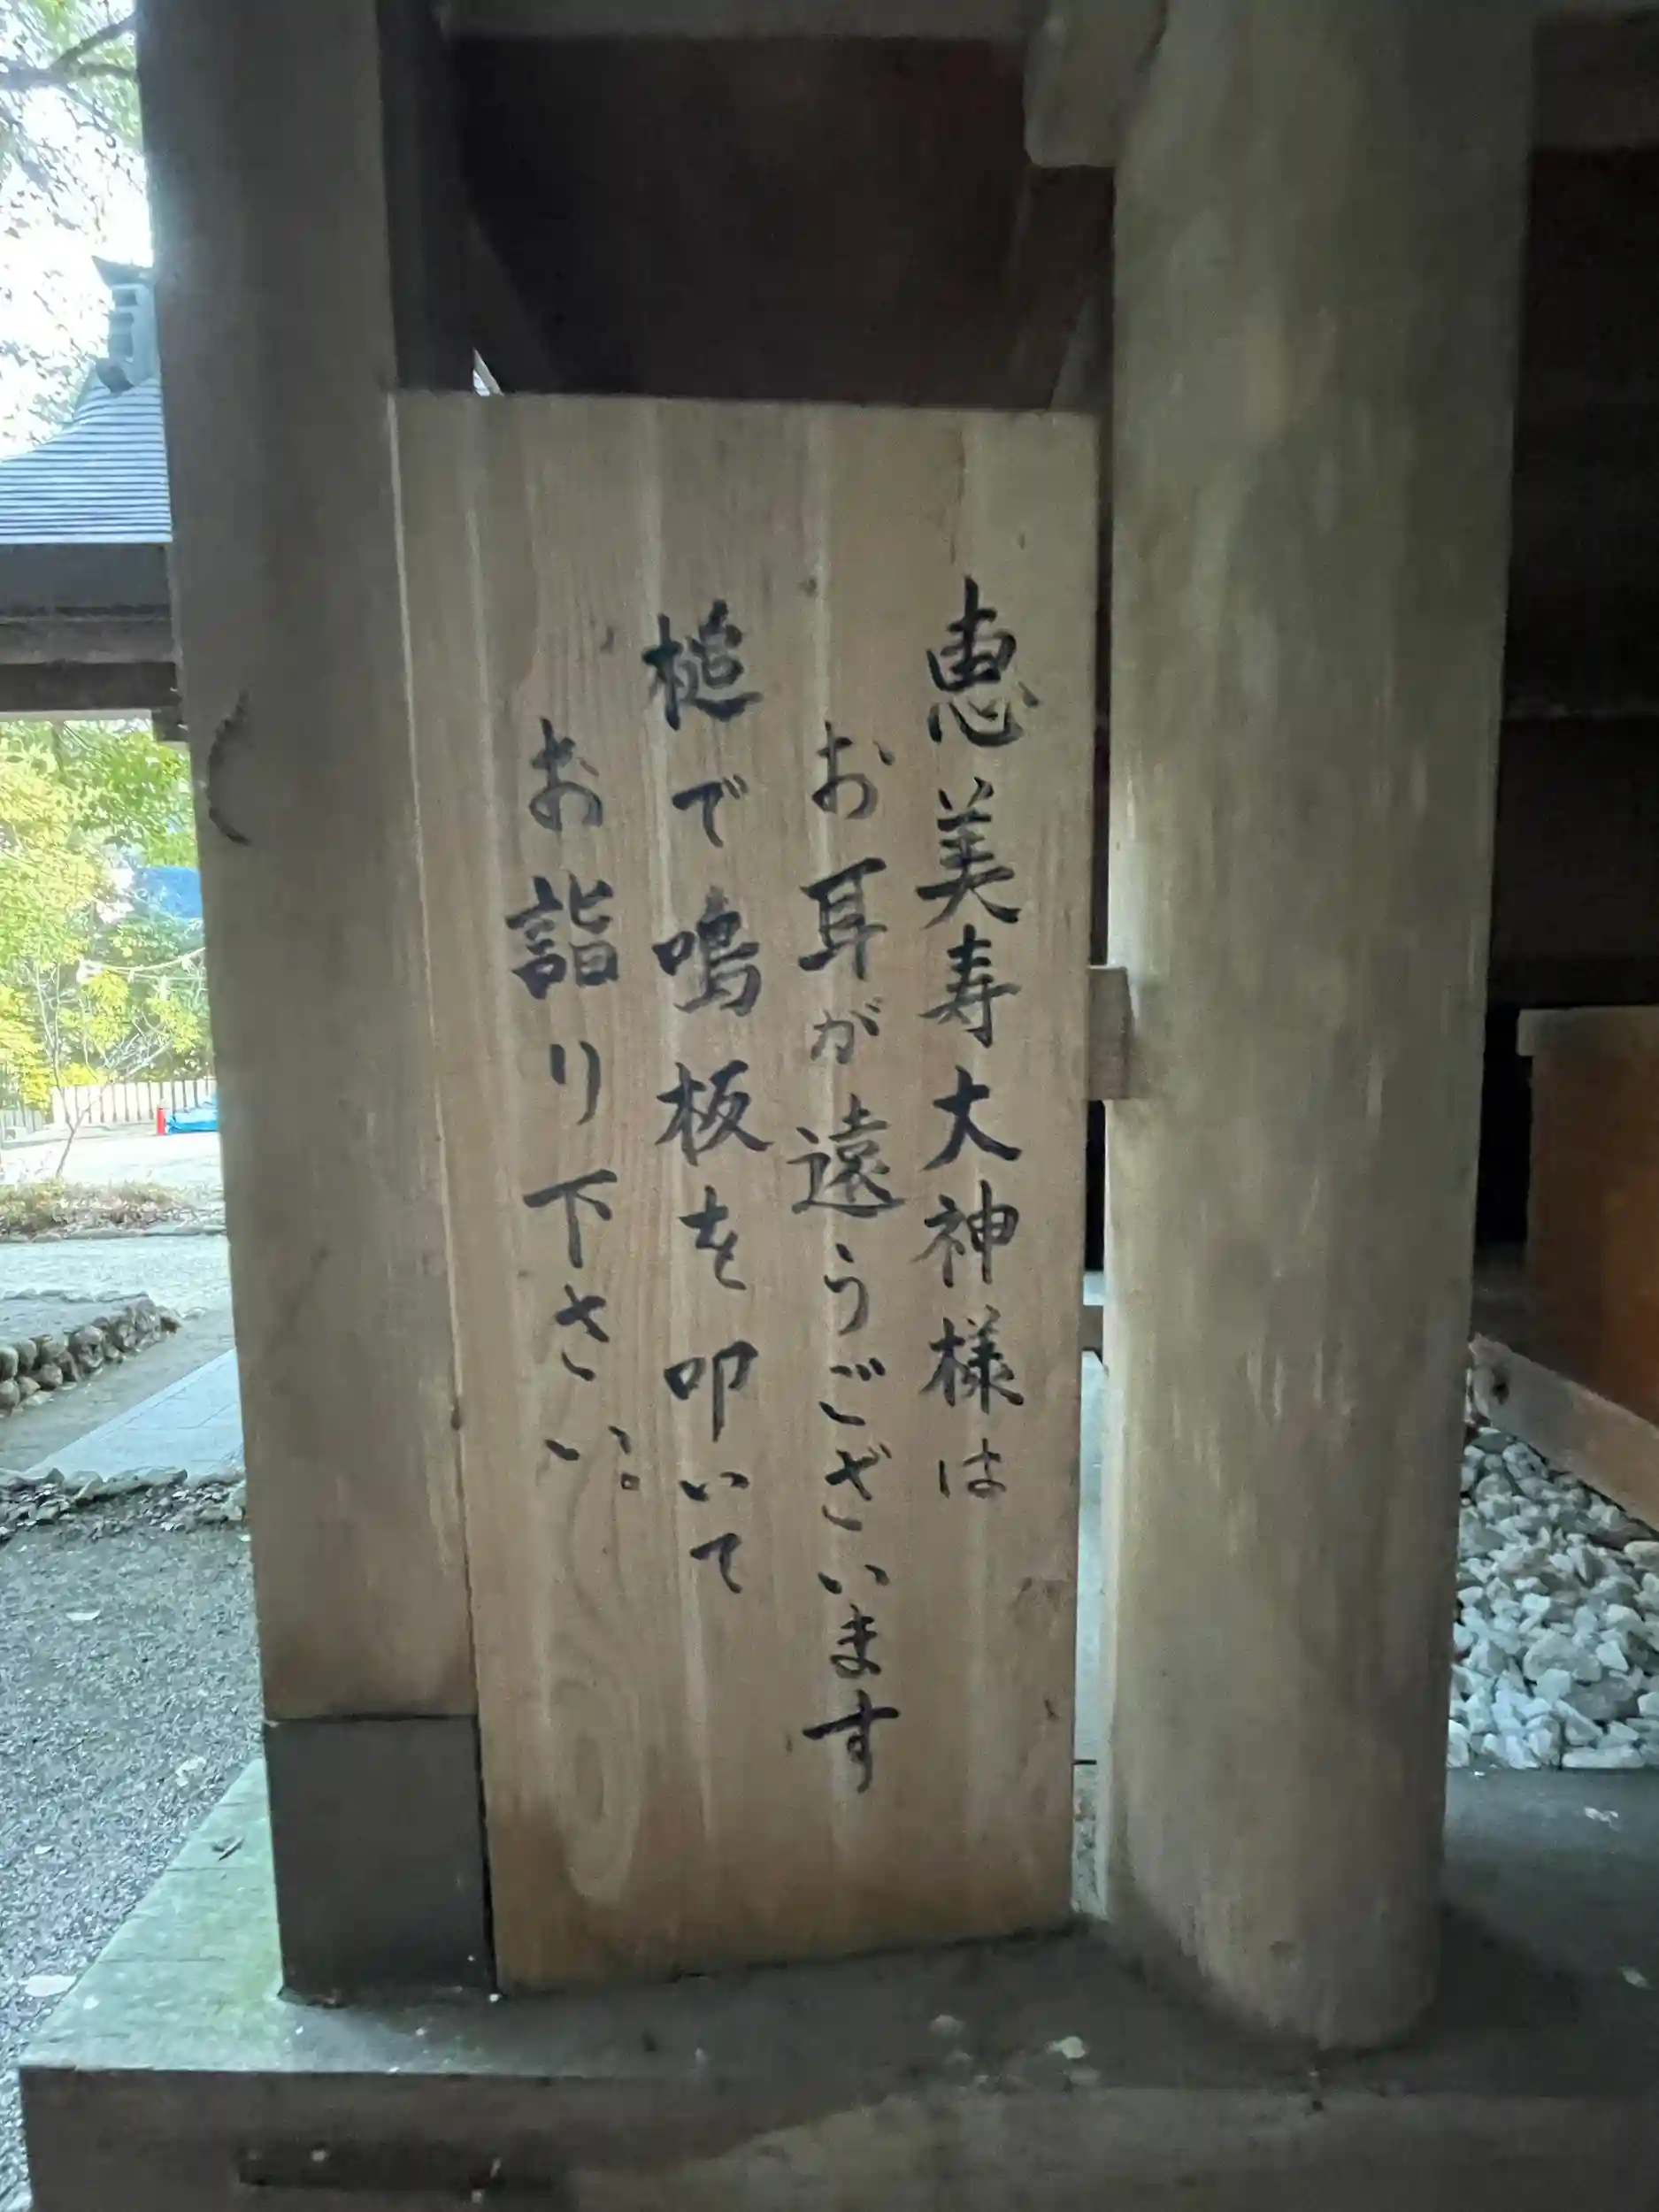 恵美寿大神様は
お耳が遠うございます
槌で鳴板を叩いて
お詣り下さい。